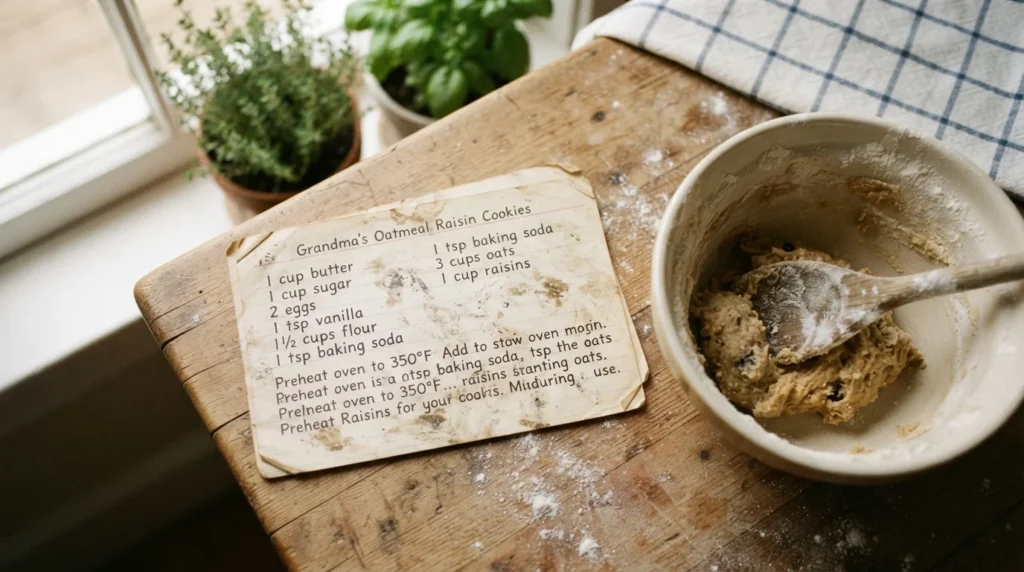 Grandma's Oatmeal Raisin Cookies
1 cup butter
1 cup sugar
2 eggs
1 tsp vanilla
1 1/2 cups flour
1 tsp baking soda
1 tsp baking soda
3 cups oats
1 cup raisins
Preheat oven to 350°F Add to stow oven
Preheat oven is a otsp baking soda, tsp the oats
Prelneat oven to 350°F... raisins stanting oats.
Preheat Raisins for your cookis. use.